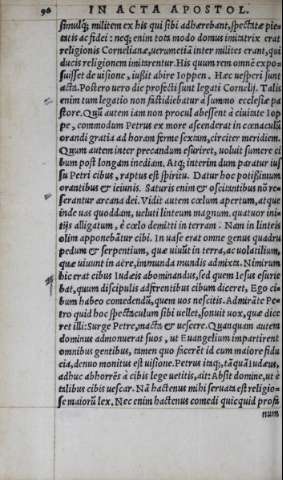 96 IN ACTA APOSTOL.
simulq; militem ex his qui sibi adhærebant, spectatæ pie-
tatis ac fidei: neq; enim tota modo domus imitatrix erat
religionis Cornelianæ, uerumetiã inter milites erant, qui
ducis religionem imitarentur. His quum rem omnẽ expo-
suisset de uisione, iussit abire Ioppen. Hæc uesperi sunt
acta. Postero uero die profecti sunt legati Cornelij. Talis
enim tum legatio non fastidiebatur à summo ecclesiæ pa
store. Quũ autem iam non procul abessent à ciuitate Iop
pe, commodum Petrus ex more ascenderat in cœnaculũ
orandi gratia ad horam ferme sextam, circiter meridiem.
Quum autem inter precandum esuriret, uoluit sumere ci
bum post longam inediam. Atq; interim dum paratur ius
su Petri cibus, raptus est spiritu. Datur hoc potissimum
orantibus & ieiunis. Saturis enim & oscitantibus nõ re-
serantur arcana dei. Vidit autem cœlum apertum, atque
inde uas quoddam, ueluti linteum magnum, quatuor ini-
tijs alligatum, è cœlo demitti in terram. Nam in linteis
olim apponebãtur cibi. In uase erat omne genus quadru
pedum & serpentium, quæ uiuũt in terra, ac uolatilium,
quæ uiuunt in aëre, inmunda mundis admixta. Nimirum
hic erat cibus Iudæis abominandus, sed quem Iesus esurie
bat, quum discipulis adferentibus cibum diceret, Ego ci
bum habeo comedendũ, quem uos nescitis. Admirãte Pe-
tro quid hoc spectaculum sibi uellet, sonuit uox, quæ dice
ret illi: Surge Petre, macta & uescere. Quanquam autem
dominus admonuerat suos, ut Euangelium impartirent
omnibus gentibus, tamen quo ficerẽt id cum maiore fidu
cia, denuo monitus est uisione. Petrus itaq;, tãquã Iudæus,
adhuc abhorrẽs à cibis lege uetitis, ait: Absit domine, ut è
talibus cibis uescar. Nã hactenus mihi seruata est religio-
se maiorũ lex. Nec enim hactenus comedi quicquid profa
num